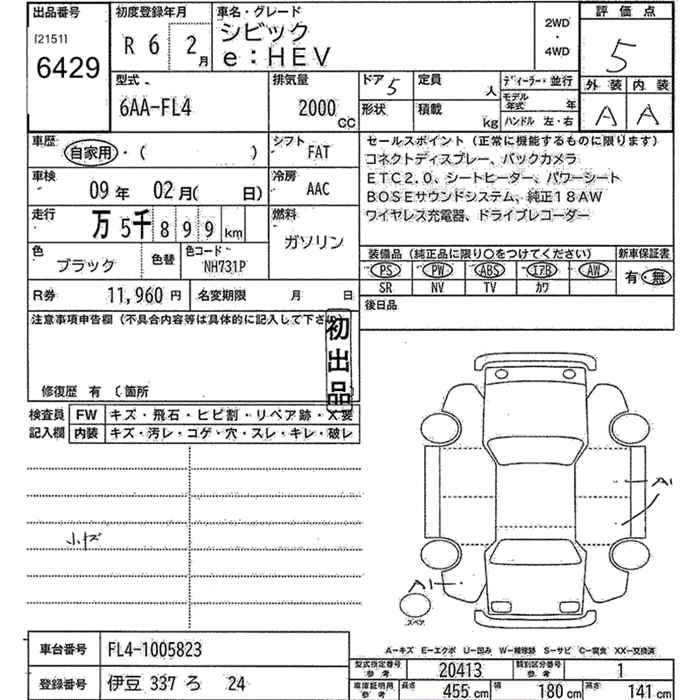 出品番号
[2151]
6429
初度登録年月
R 6 2 月
車名・グレード
シビック
e:HEV
2WD
・
4WD
評価点
5
外装 内装
A A
型式
6AA-FL4
排気量
2000
CC
ドア 5
定員
人
形状
積載
kg
ディーラー・並行
モデル年式 年
ハンドル 左・右
車歴
自家用・( )
シフト
FAT
車検
09 年 02 月( 日)
冷房
AAC
走行
万 5千 8 9 9 km
燃料
ガソリン
色
ブラック
色替
色コード
NH731P
R券 11,960 円
名変期限 月 日
セールスポイント(正常に機能するものに限ります)
コネクトディスプレー、バックカメラ
ETC2.0、シートヒーター、パワーシート
BOSEサウンドシステム、純正18AW
ワイヤレス充電器、ドライブレコーダー
装備品(純正品に限り○をつけてください)
PS PW ABS エアB AW
SR NV TV カワ
新車保証書
有・無
後日品
注意事項申告欄(不具合内容等は具体的に記入して下さい)
初出品
修復歴 有 〔箇所
検査員
記入欄
FW キズ・飛石・ヒビ割・リペア跡・X要
内装 キズ・汚レ・コゲ・穴・スレ・キレ・破レ
小キズ
A1
A1
スペア
車台番号
FL4-1005823
登録番号
伊豆 337 ろ 24
A-キズ E-エクボ U-凹み W-補修跡 S-サビ C-腐食 XX-交換済
型式指定番号 参考
20413
類別区分番号 参考
1
車庫証明用 参考
長さ 455 cm
幅 180 cm
高さ 141 cm